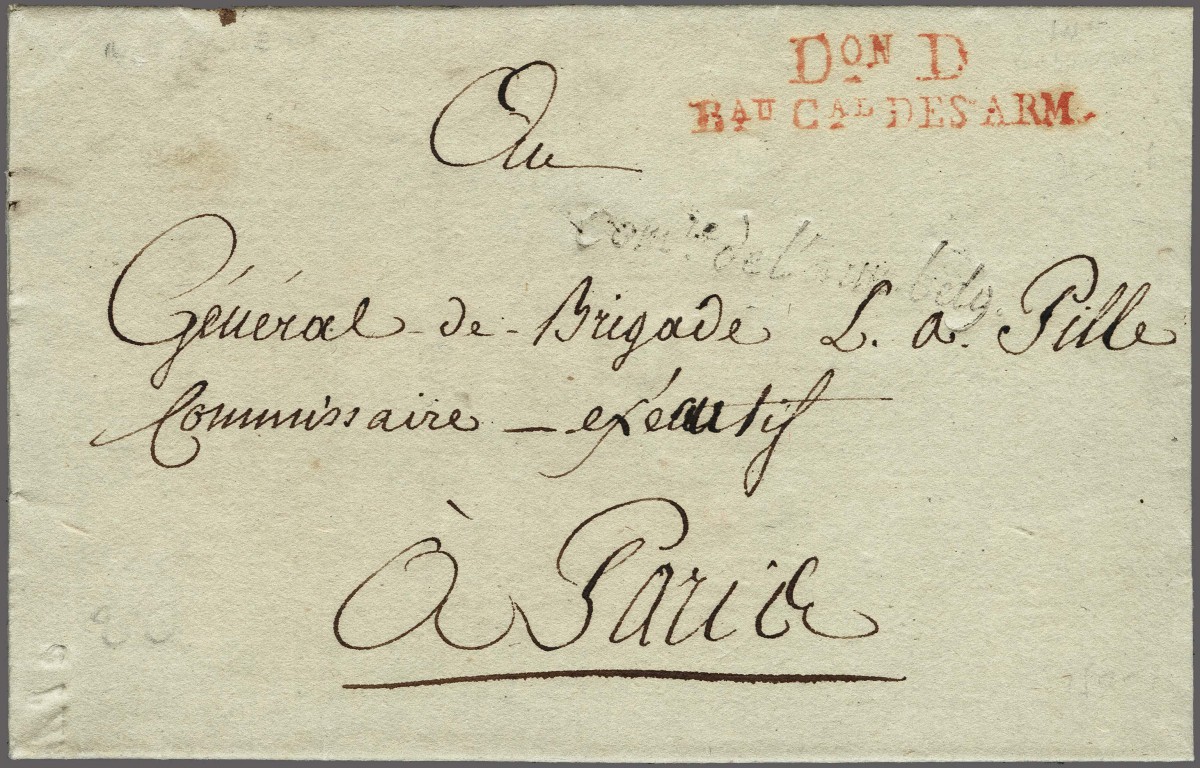 Don D
Bau Cal DES ARM.
Au
Comre de l'arm. belg.
Général de Brigade L. a. Pille
Commissaire exécutif
À Paris